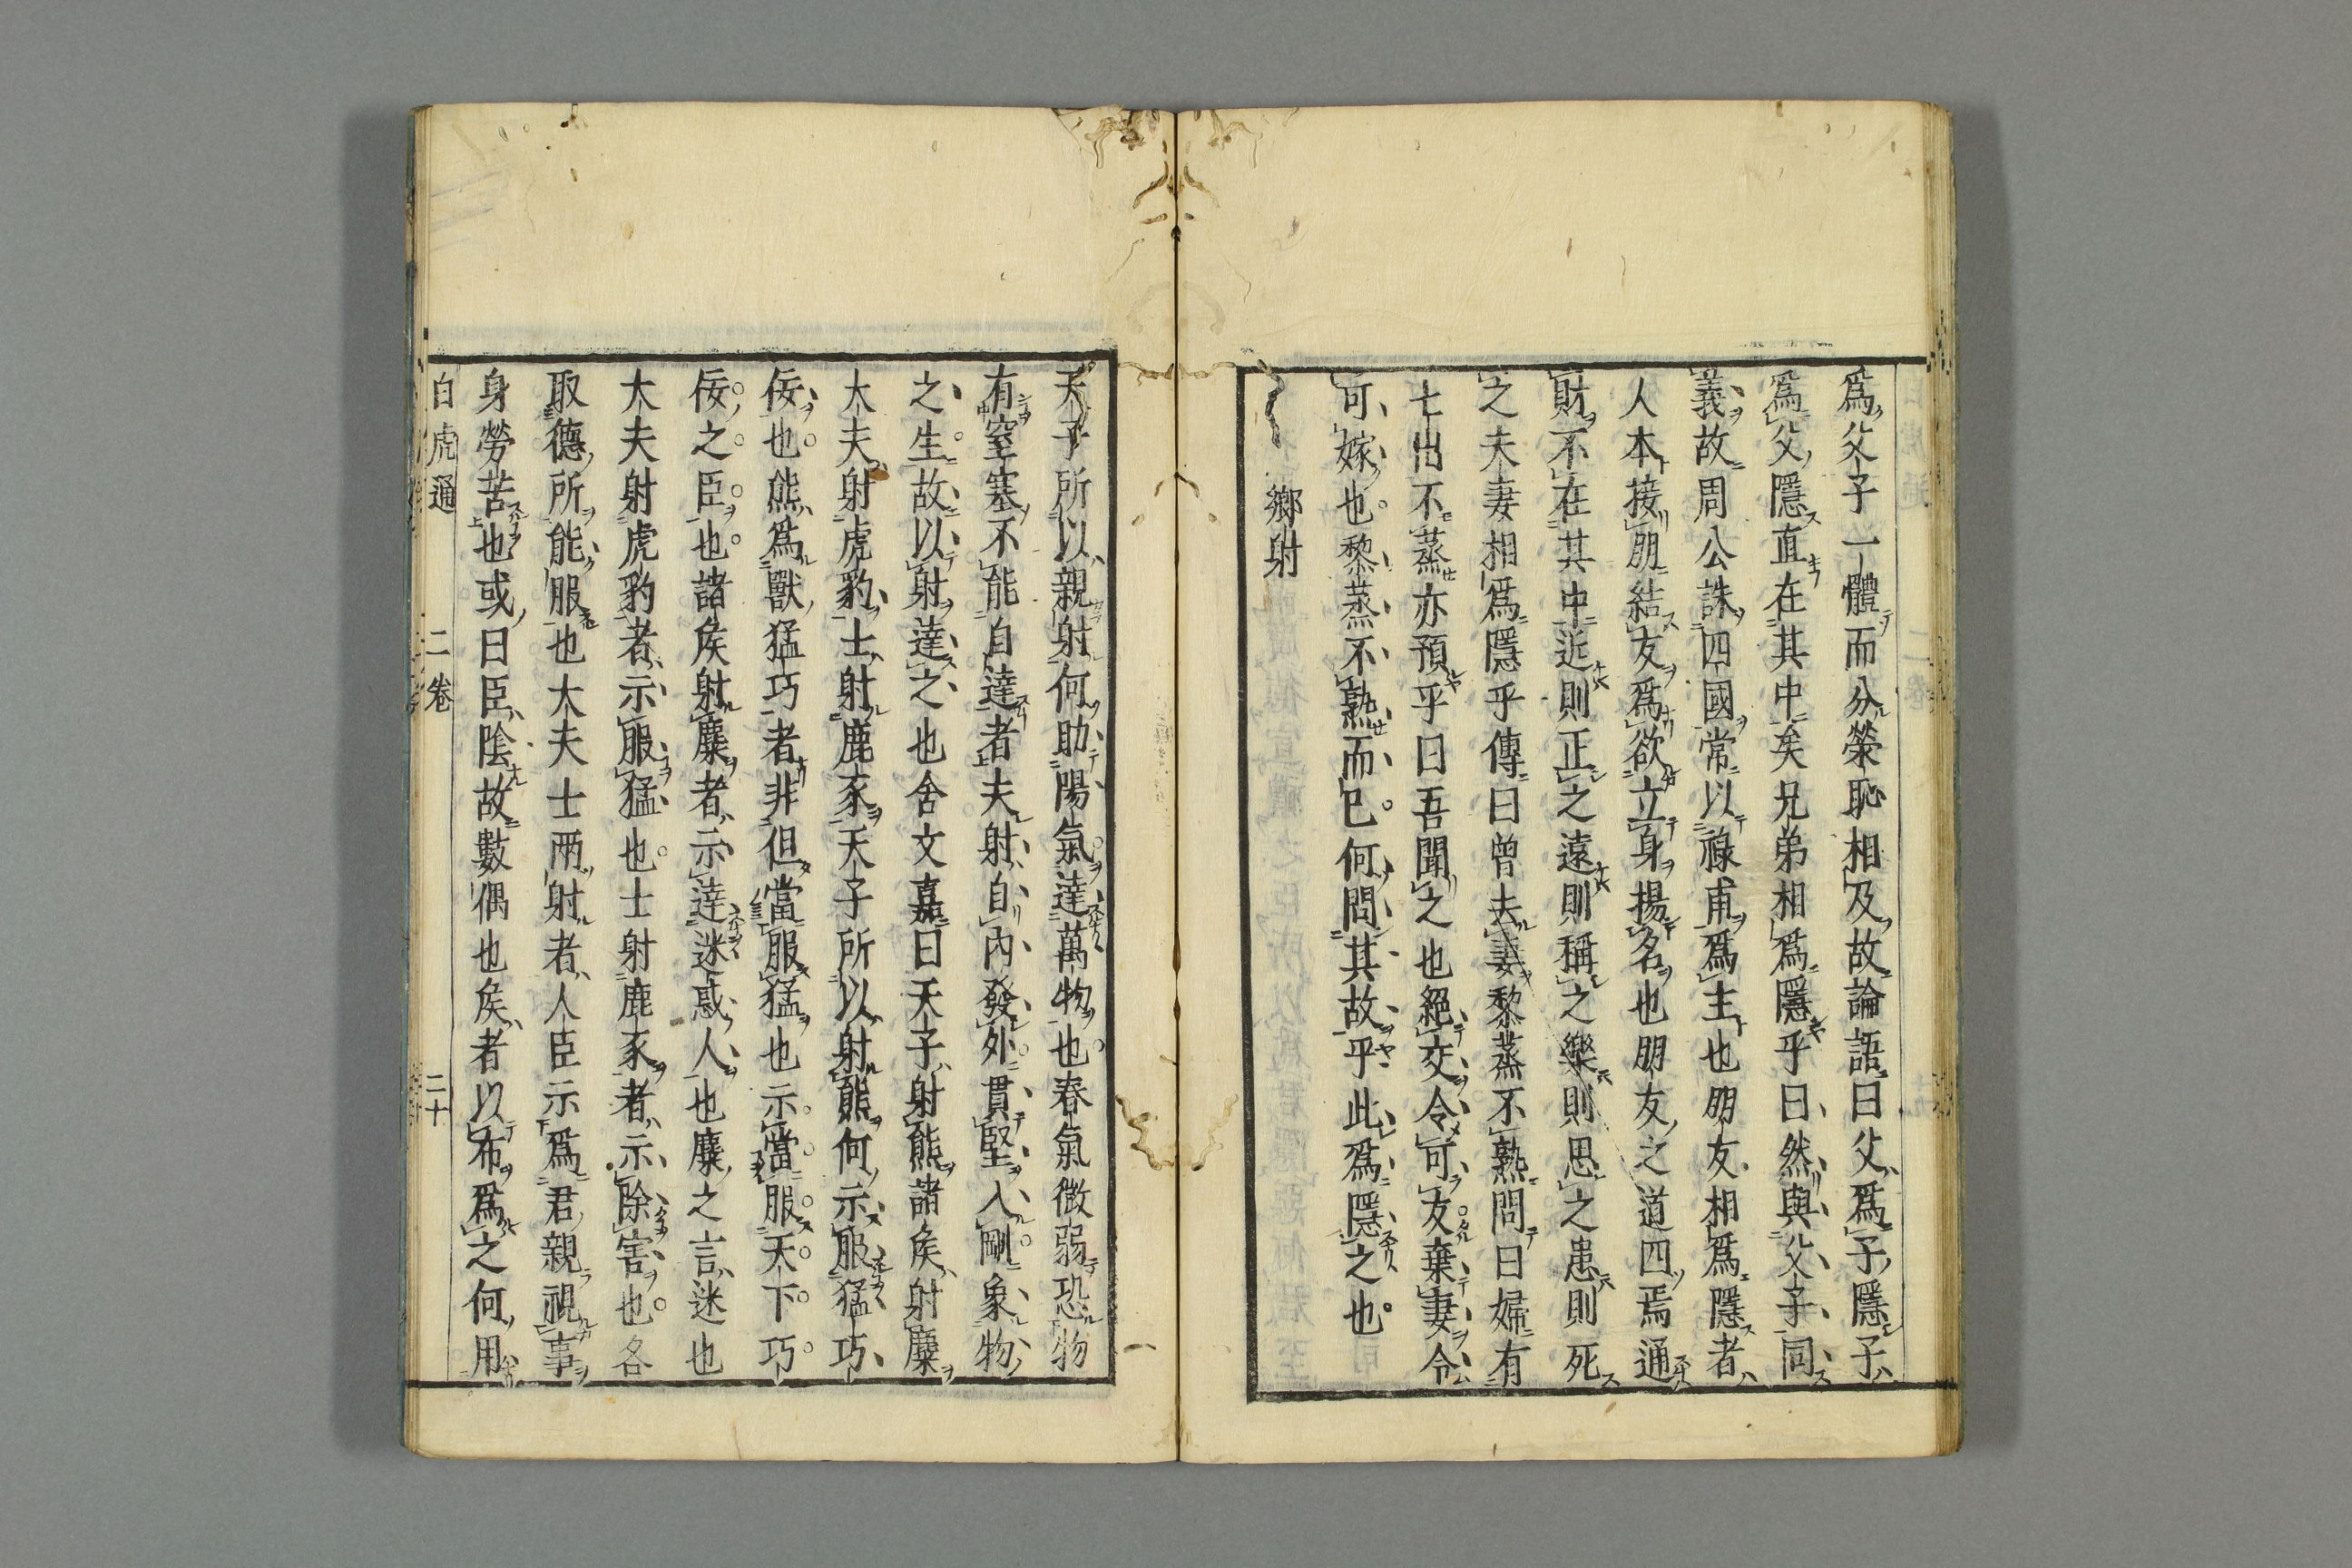 爲父子一體而分榮恥相及故論語曰父爲子隱子
爲父隱直在其中矣兄弟相爲隱乎曰然與父子同
義故周公誅四國常以祿甫爲主也朋友相爲隱者
人本接朋結友爲欲立身揚名也朋友之道四焉通
財不在其中近則正之遠則稱之樂則思之患則死
之夫妻相爲隱乎傳曰曾去妻黎蒸不熟問曰婦有
七出不蒸亦預乎曰吾聞之也絕交令可友棄妻令
可嫁也黎蒸不熟而已何問其故乎此爲隱之也
鄉射
天子所以親射何助陽氣達萬物也春氣微弱恐物
有窒塞不能自達者夫射自內發外貫堅入剛象物
之生故以射達之也含文嘉曰天子射熊諸侯射麋
大夫射虎豹士射鹿豕天子所以射熊何示服猛巧
佞也熊爲獸猛巧者非但當服猛也示當服天下巧
佞之臣也諸侯射麋者示達迷惑人也麋之言迷也
大夫射虎豹者示服猛也士射鹿豕者示除害也各
取德所能服也大夫士兩射者人臣示爲君親視事
身勞苦也或曰臣陰故數偶也侯者以布爲之何用
白虎通 二卷 二十